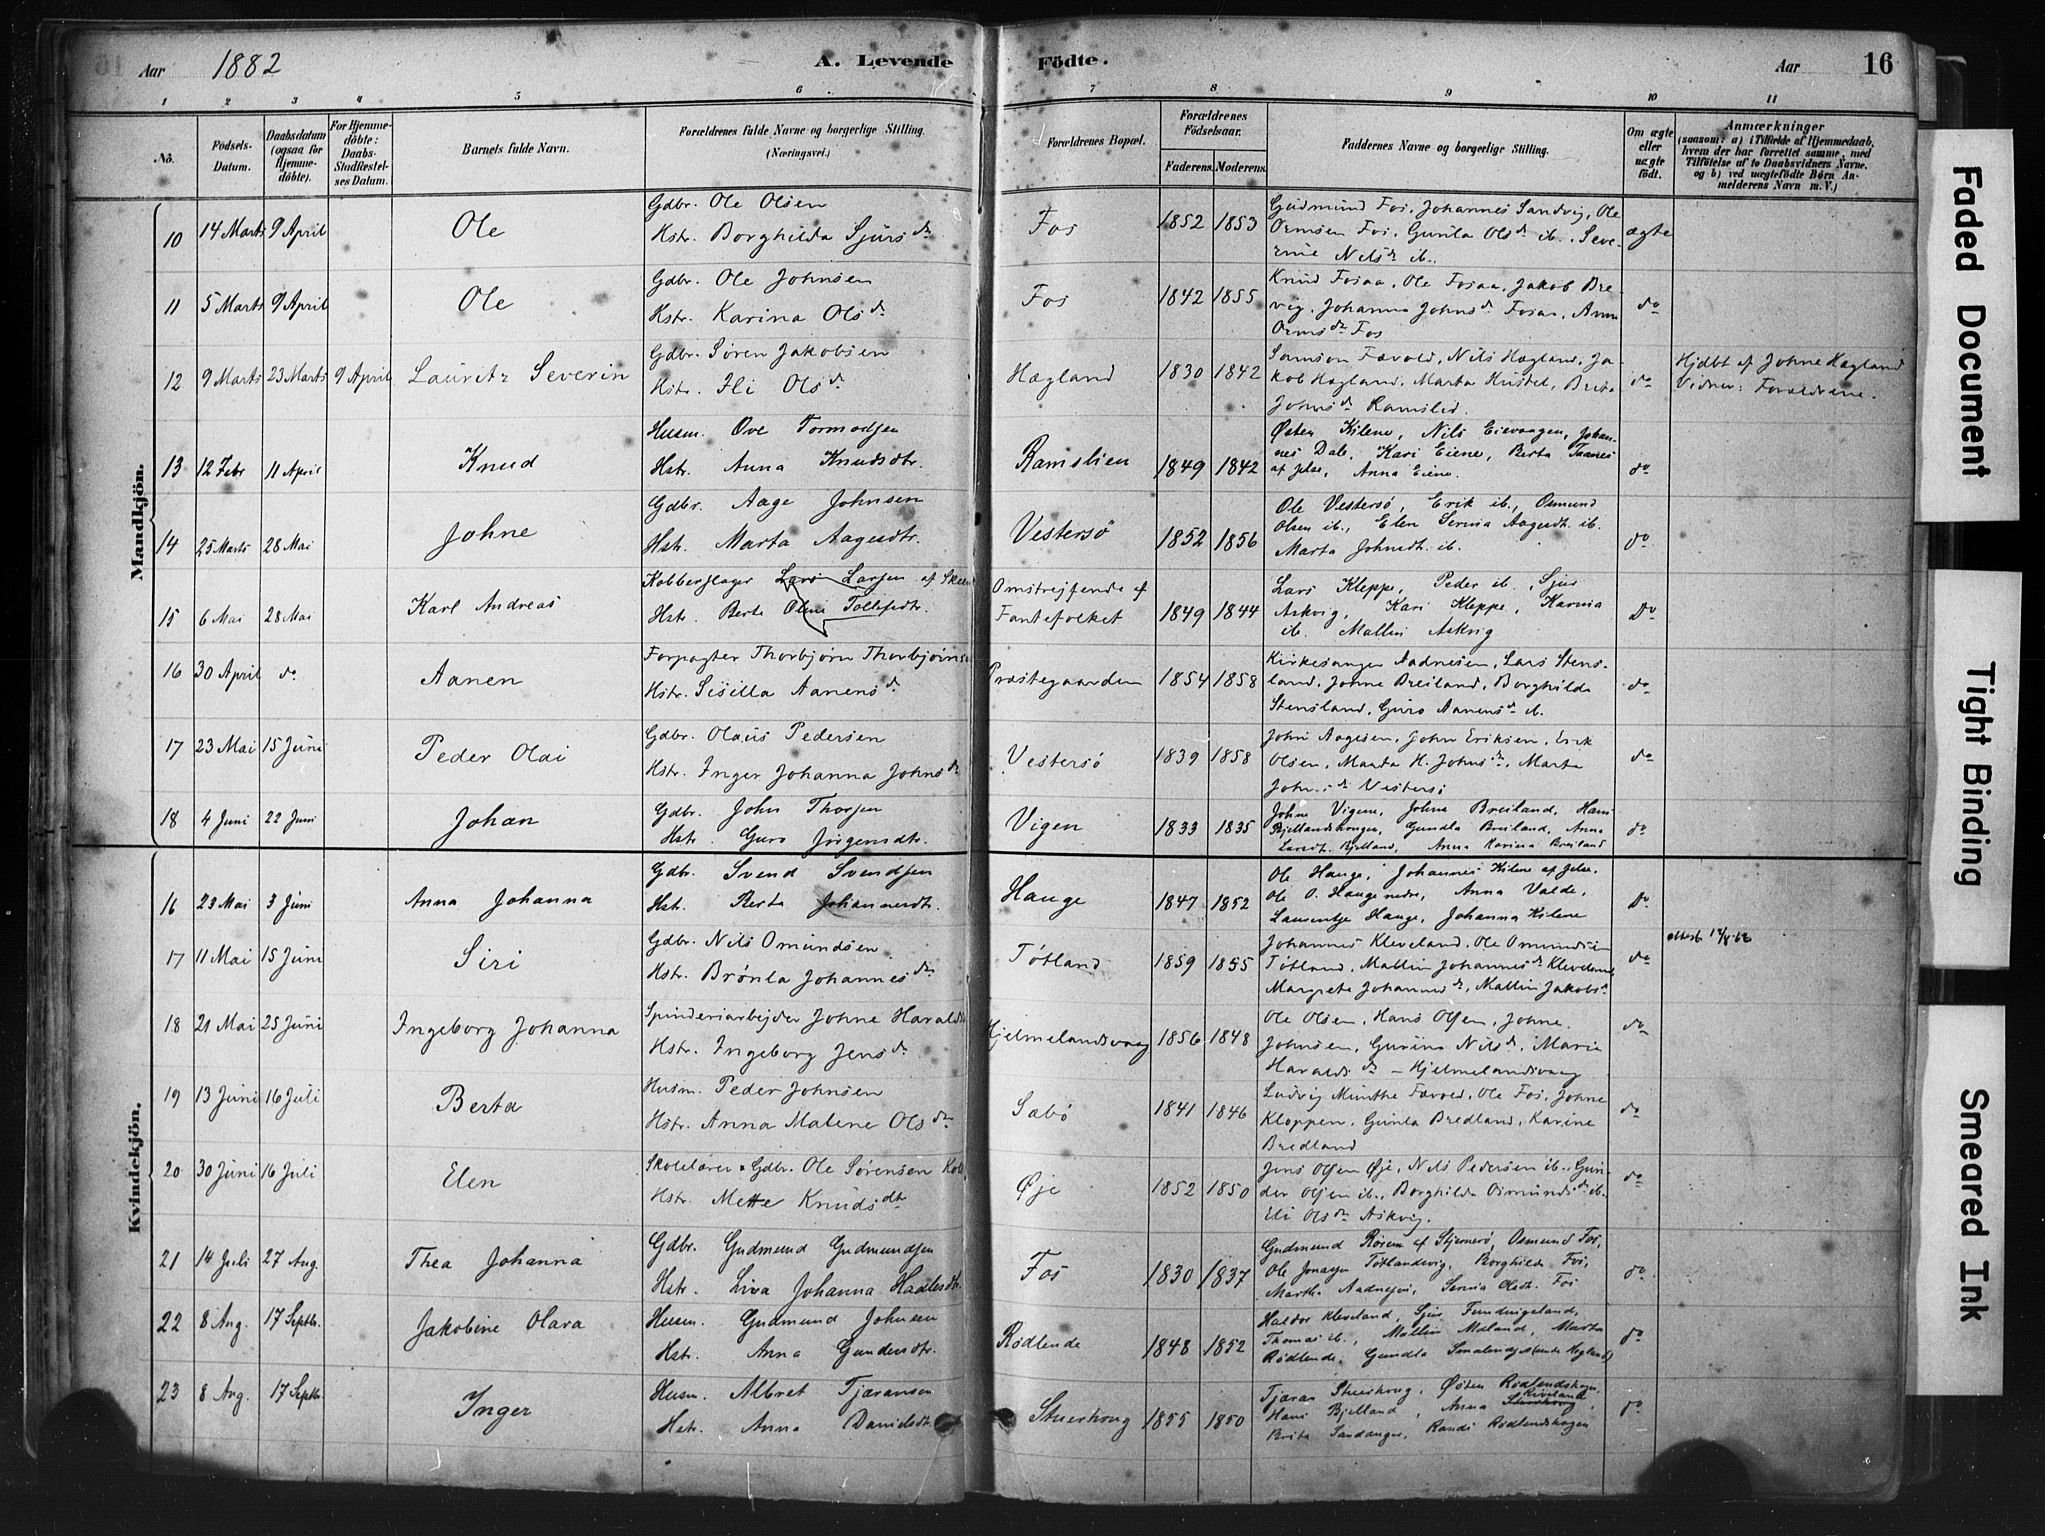 Aar 1882 A. Levende Födte. Aar 16
1 2 3 4 5 6 7 8 9 10 11
No. Födsels-Datum. Daabsdatum (ogsaa for Hjemmedöbte). For Hjemmedöbte: Daabs-Stadfæstelses Datum. Barnets fulde Navn. Forældrenes fulde Navne og borgerlige Stilling. (Næringsvei.) Forældrenes Bopæl. Forældrenes Födselsaar. Faderens. Moderens. Faddernes Navne og borgerlige Stilling. Om ægte eller uægte födt. Anmærkninger (saasom: a) i Tilfælde af Hjemmedaab, hvem der har forrettet samme, med Tilföielse af to Daabsvidners Navne. og b) ved uægtefödte Börn Anmelderens Navn m. V.)
Mandkjön.
10 14 Marts 9 April Ole Gdbr. Ole Olsen
Hstr. Borghilda Sjursdr. Fos 1852 1853 Gudmund Fos, Johannes Sandvig, Ole
Ormsen Fos, Gunla Olsdr ib. Seve-
rine Nilsdr ib. ægte
11 5 Marts 9 April Ole Gdbr. Ole Johnsen
Hstr. Karina Olsdr. Fos 1842 1855 Knud Fosaa, Ole Fosaa, Jakob Bre-
vig, Johanna Johnsdr Fosaa, Anna
Ormsdr Fos do
12 9 Marts 23 Marts 9 April Lauritz Severin Gdbr. Søren Jakobsen
Hstr. Eli Olsdr. Hægland 1830 1842 Samson Fævold, Nils Hægland, Ja-
kob Hægland, Marta Hustel, Berta
Johnsdr Ramslid. do Hjdbt af Johne Hægland
Vidner: Forældrene.
13 12 Febr 11 April Knud Husm. Ove Tormodsen
Hstr. Anna Knudsdtr. Ramslien 1849 1842 Østen Kilene, Nils Eievangen, Johan-
nes Dale, Kari Eiene, Berta
af Jelse, Anna Eiene. do
14 25 Marts 28 Mai Johne Gdbr. Aage Johnsen
Hstr. Marta Aagesdtr. Vestersø 1852 1856 Ole Vestersø, Erik ib., Osmund
Olsen ib., Elen Serina Aagesdt. ib.
Marta Johnsdt. ib. do
15 6 Mai 28 Mai Karl Andreas Kobberslager Lars Larsen af
Hstr. Berte Oline Tollefsdtr. Omstreifende af
Fantefolket 1849 1844 Lars Kleppe, Peder ib., Sjur
Askvig, Kari Kleppe, Karina
ib. Mallin Askvig Do
16 30 April do Aanen Forpagter Thorbjørn Thorbjørns
Hstr. Sisilla Aanensdr. Præstegaarden 1854 1858 Kirkesanger Aadnesen, Lars Stens-
land, Johne Breiland, Borghilda
Stensland, Guro Aanensdr ib. do
17 23 Mai 15 Juni Peder Olai Gdbr. Olaus Pedersen
Hstr. Inger Johanna Johnsdr. Vestersø 1839 1858 John Aagesen, John Eriksen, Erik
Olsen, Marta H. Johnsdr., Marta
Johnsdr Vestersø do
18 4 Juni 22 Juni Johan Gdbr. John Thorsen
Hstr. Guro Jørgensdtr. Vigen 1833 1835 Johne Vigene, Johne Breiland, Hans
Bjellandshougen, Gundla Breiland, Anna
Larsdt. Bjelland, Anna Karina Breiland do
Kvindekjön.
16 23 Mai 3 Juni Anna Johanna Gdbr. Svend Svendsen
Hst. Berta Johannesdt. Hauge 1847 1852 Ole Hauge, Johannes Kilene af Jelse,
Ole O. Haugenedre, Anna Valde,
Laurentse Hauge, Johanna Kilene Do
17 11 Mai 15 Juni Siri Gdbr. Nils Omundsen
Hstr. Brønla Johannesdr. Tøtland 1859 1855 Johannes Kleveland, Ole Omundsen
Tøtland, Mallin Johannesdr Kleveland
Margrete Johannesdr, Mallin Jakobsdr do
18 21 Mai 25 Juni Ingeborg Johanna Spinderiarbejder Johne Haralds
Hstr. Ingeborg Jensdr. Hjelmelandsvaag 1856 1848 Ole Olsen, Hans Olsen, Johne
Johnsen, Gurina Nilsdr, Marie
Haraldsdr – Hjelmelandsvaag do
19 13 Juni 16 Juli Berta Husm. Peder Johnsen
Hstr. Anna Malene Olsdr Sæbø 1841 1846 Ludvig Munthe Fævold, Ole Fos, Johne
Kloppen, Gunla Bredland, Karine
Bredland do
20 30 Juni 16 Juli Elen Skolelærer & Gdbr. Ole Sørensen
Hstr. Mette Knudsdtr Øje 1852 1850 Jens Olsen Øje, Nils Pedersen ib., Gun-
der Olsen ib., Borghilda Osmundsdr ib.
Eli Olsdr Askvig. do
21 14 Juli 27 Aug. Thea Johanna Gdbr. Gudmund Gudmundsen
Hstr. Liva Johanna Fos 1830 1837 Gudmund Røsen af Stjernerø, Osmund Fos,
Ole Jonasen Tøtlandsvig, Borghilda Fos,
Martha Aadnesen, Serina Olsdt. Fos do
22 8 Aug. 17 Septbr. Jakobine Olava Husm. Gudmund Johnsen
Hstr. Anna Gundersdtr. Rødlende 1848 1852 Haldor Kleveland, Sjur Funningsland,
Thomas ib., Mallin Mæland, Marta
Rødlende, Gundla do
23 8 Avg. 17 Septbr. Inger Husm. Albret Tjæransen
Hstr. Anna Danielsdt Stuerhoug 1855 1850 Tjæran Stuerhoug, Østen Rødlendshougen,
Hans Bjelland, Anna
Brita Sandanger, Randi Rødlendshougen do
Faded Document
Tight Binding
Smeared Ink